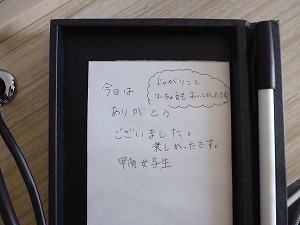 今日は
ありがとう
ございました。
楽しかったです。
甲南女子生
じゃがりこと
はいちゅうもおいしかったです